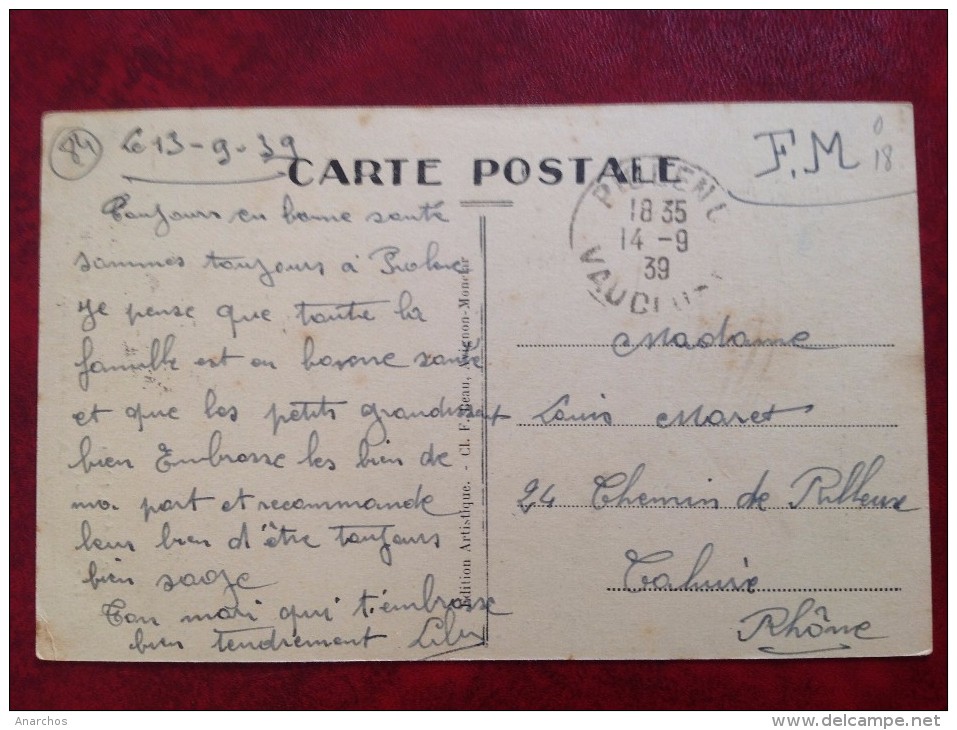 84
Le 13-9-39
CARTE POSTALE
F.M
0
18
Toujours en bonne santé
sommes toujours à Piolenc
Je pense que toute la
famille est en bonne santé
et que les petits grandissent
bien Embrasse les bien de
ma part et recommande
leur bien d'être toujours
bien sage
Ton mari qui t'embrasse
bien tendrement
Edition Artistique. - Cl. F. Beau, Avignon-Monclar
PIOLENC
18 35
14 -9
39
VAUCLUSE
Madame
Louis Maret
24 Chemin de
Caluire
Rhône
Anarchos
delcampe.net